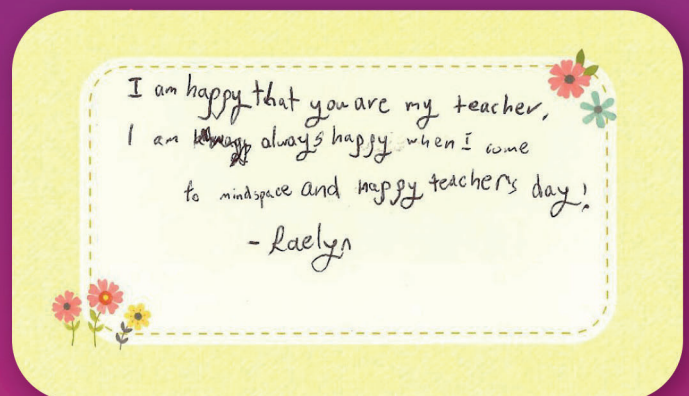 I am happy that you are my teacher,
I am always happy when I come
to mindspace and happy teacher's day!
- Raelyn